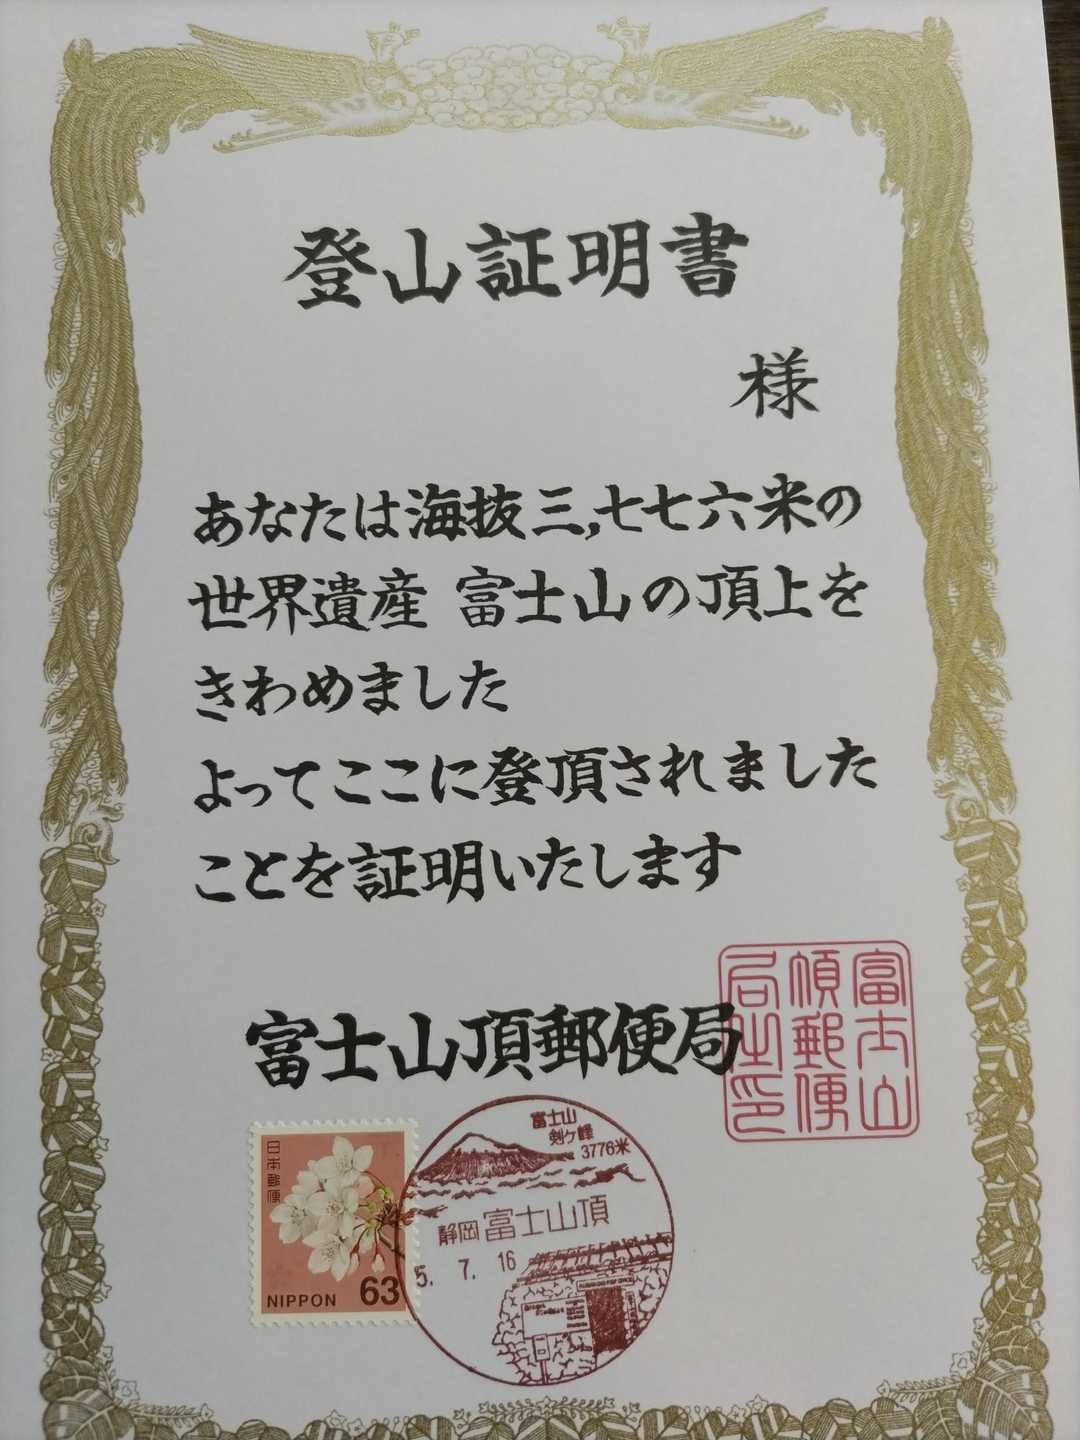 登山証明書
様
あなたは海抜三,七七六米の
世界遺産 富士山の頂上を
きわめました
よってここに登頂されました
ことを証明いたします
富士山頂郵便局
富士山
頂郵便
局之印
日本郵便
NIPPON 63
富士山
剣ヶ峰
3776米
静岡 富士山頂
5. 7. 16